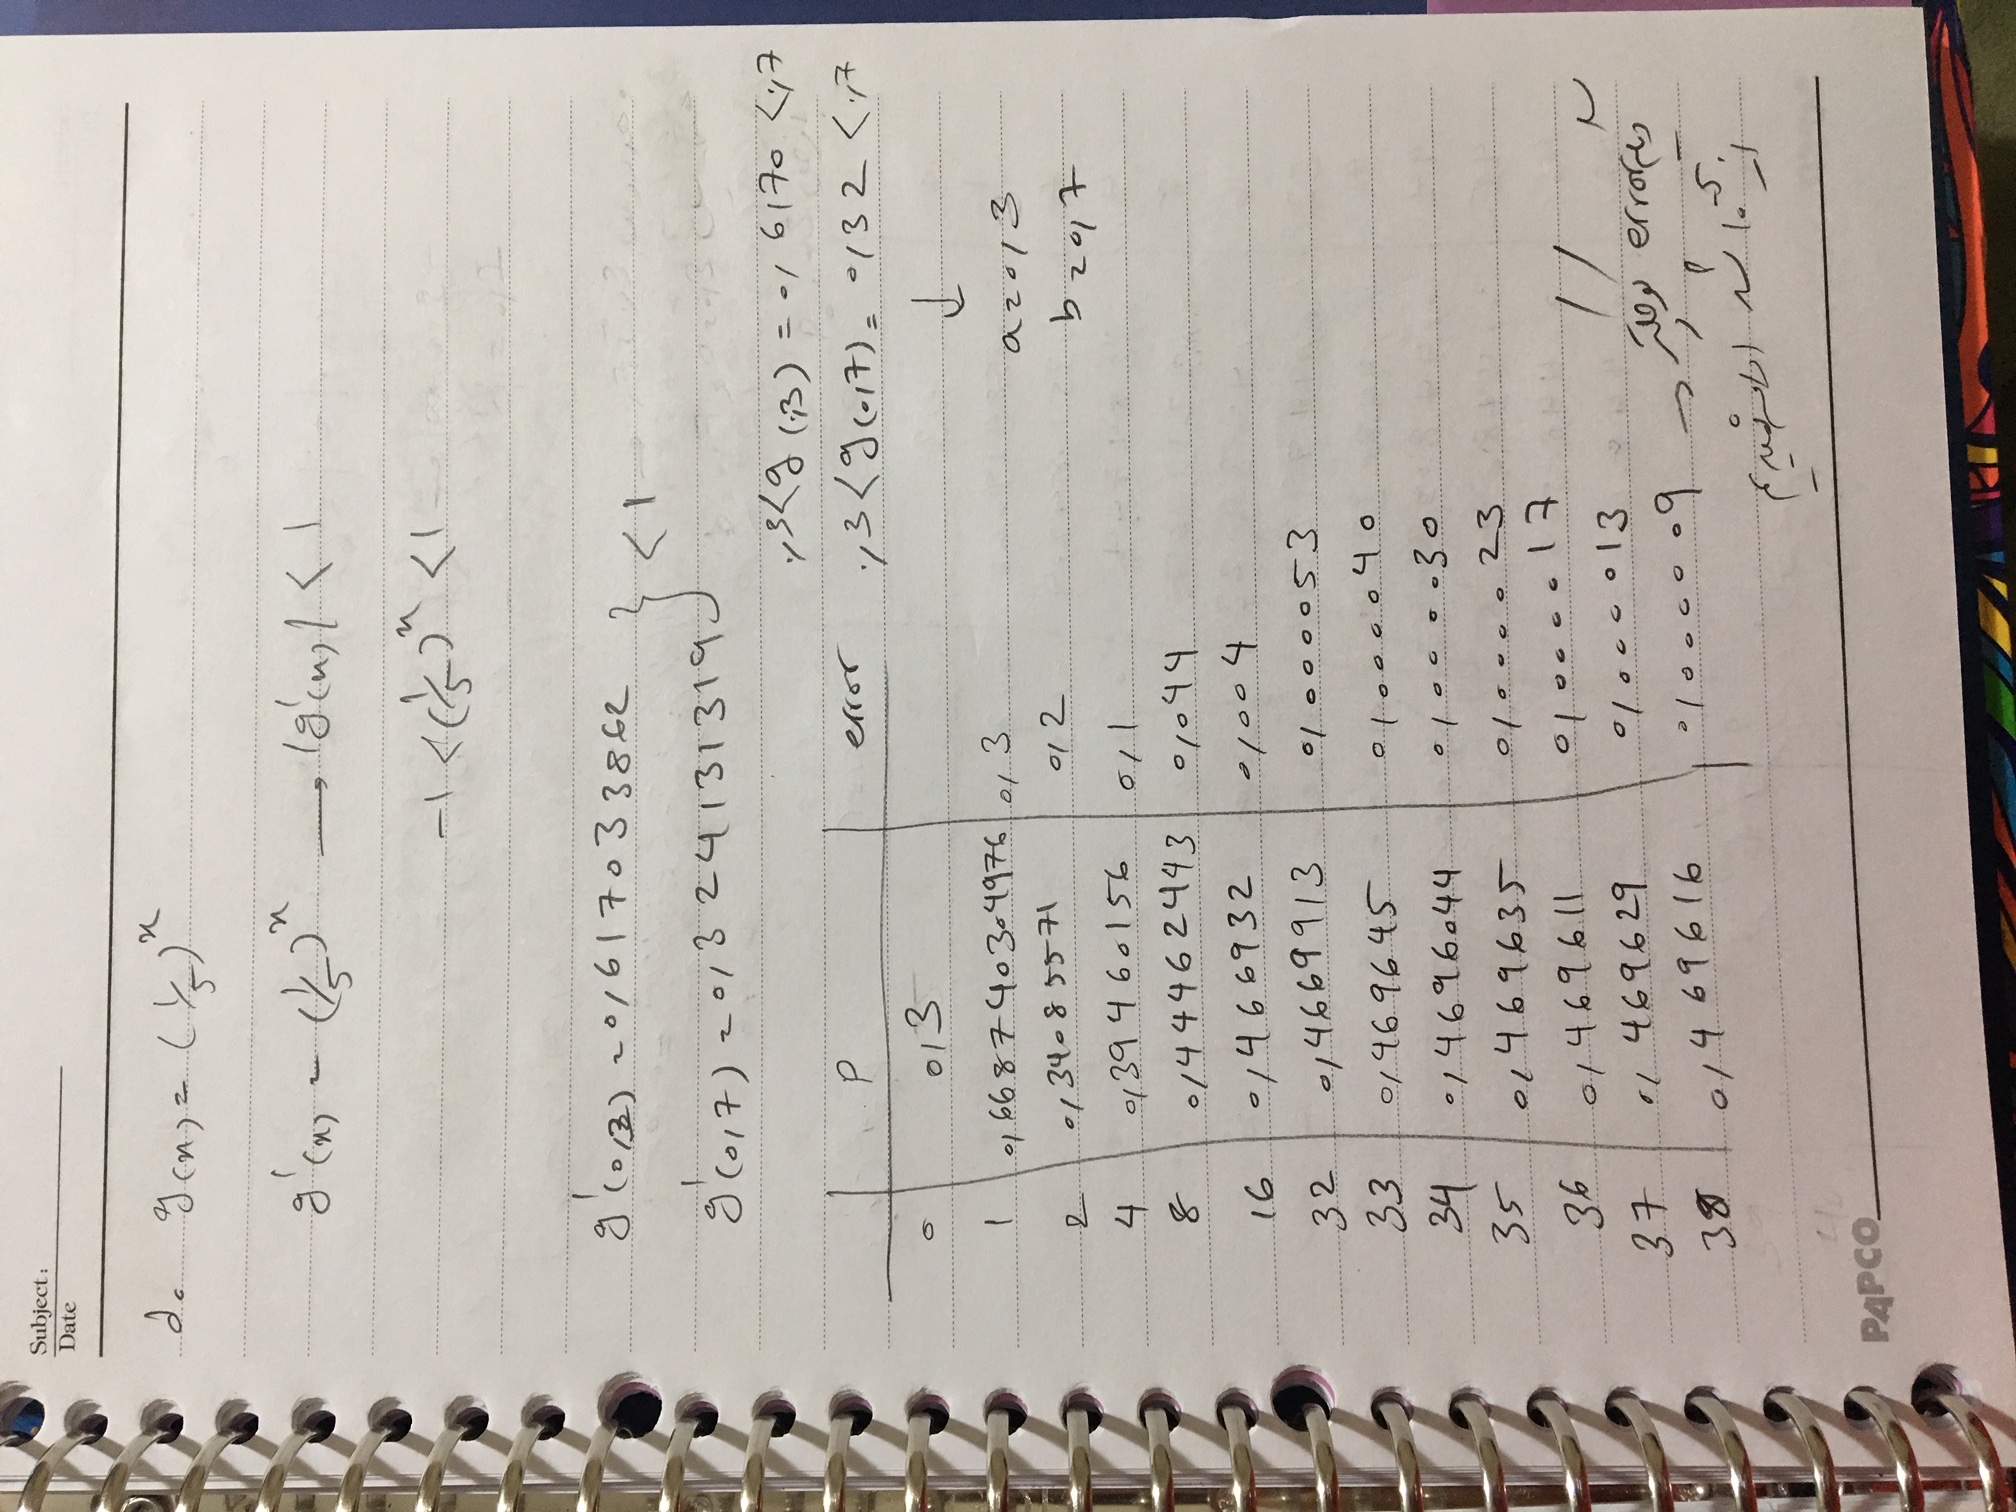 Subject:
Date
d. g(x) = (1/5)^x
g'(x) = (1/5)^x → |g'(x)| < 1
-1 < (1/5)^x < 1
g'(0,3) = 0,617033862 } < 1
g'(0,7) = 0,324131319
0,3 < g(0,3) = 0,6170 < 0,7
0,3 < g(0,7) = 0,32 < 0,7
↓
a = 0,3
b = 0,7
P error
0 0,3
1 0,668740304976 0,3
2 0,34085571 0,2
4 0,39460156 0,1
8 0,44462443 0,044
16 0,466932 0,004
32 0,4669913 0,000053
33 0,469645 0,000040
34 0,4696044 0,000030
35 0,469635 0,000023
36 0,469611 0,000017
37 0,469629 0,000013
38 0,469616 0,000009 →
error
از 10^-5 ادامه نمیدیم
PAPCO